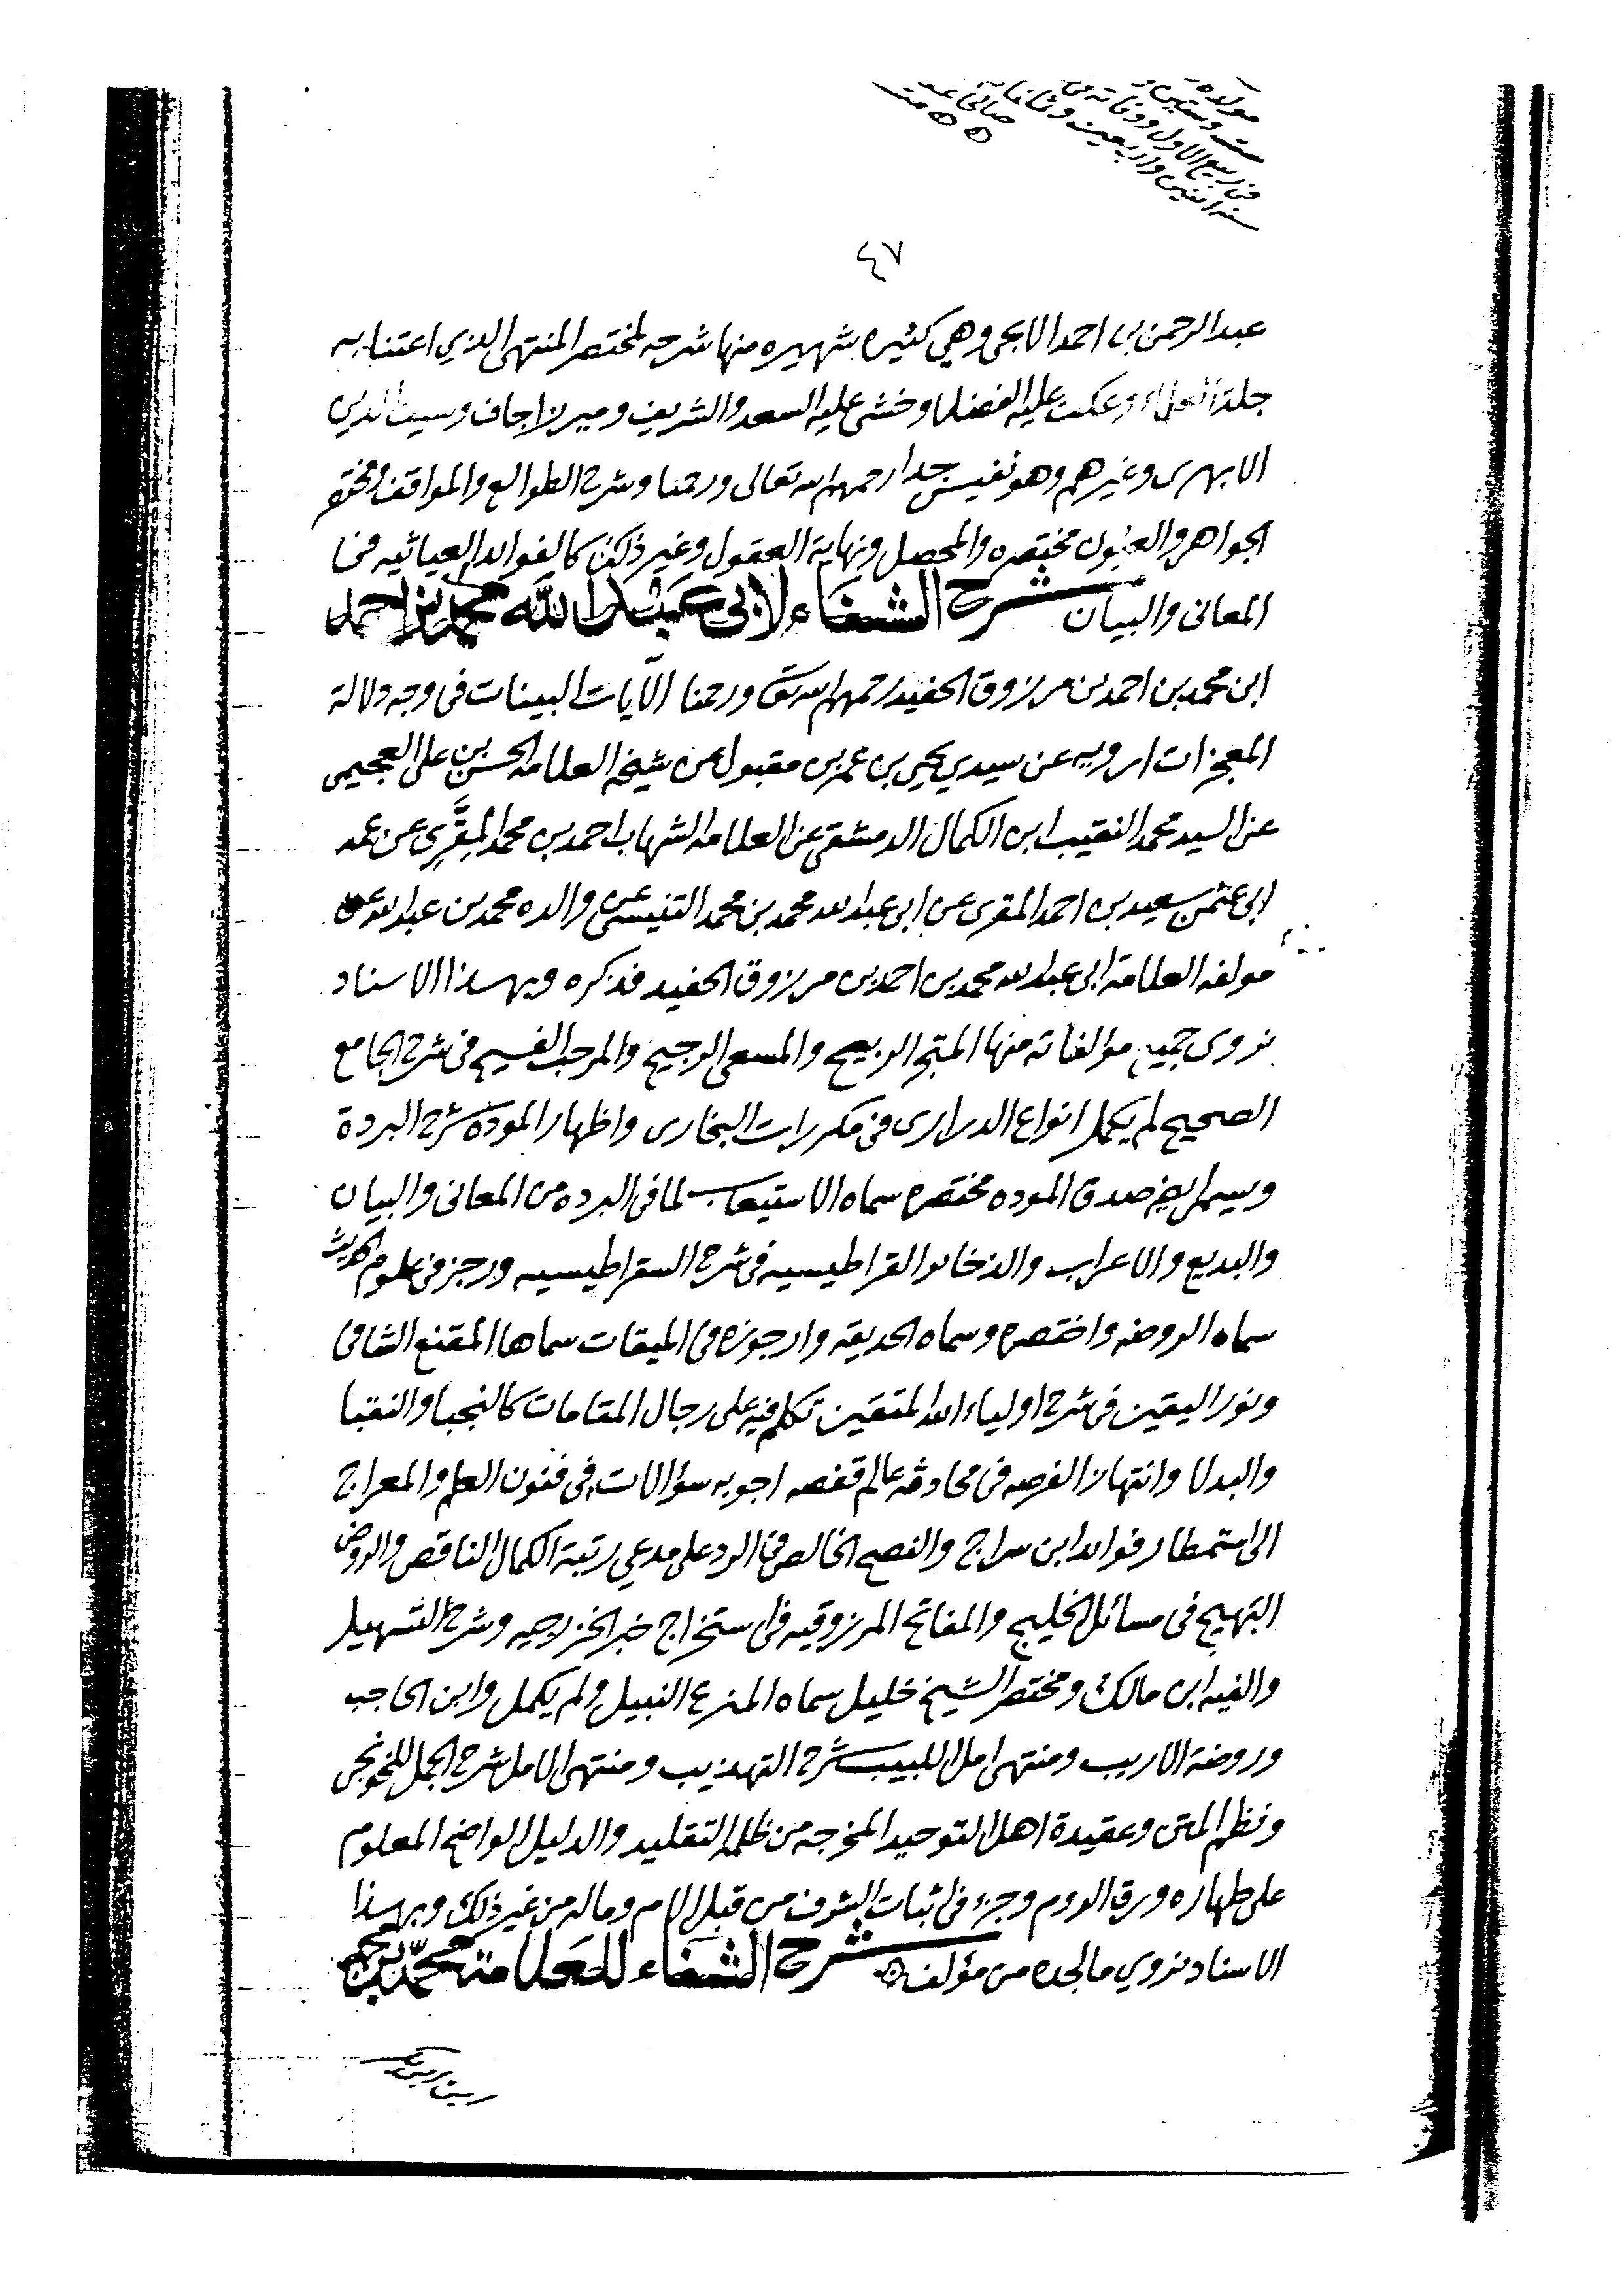 مولده
ست وستين
في ربيع الاول ووفاته في
سنه اثنين واربعين وثمانمايه
٤٧
عبدالرحمن بن احمد الايجي وهي كثيره شهيره منها شرحه لمختصر المنتهى الذي اعتنا به
جلة العلماء وعكف عليه الفضلا وحشى عليه السعد والشريف وميرزاجاف وسيف الدين
الابهرى وغيرهم وهو نفيس جدا رحمهم الله تعالى ورحمنا وشرح الطوالع والمواقف ومختصره
الجواهر والعيون مختصره والمحصل ونهاية العقول وغير ذلك كالفوايد الغياثيه في
المعاني والبيان شرح الشفاء لابي عبد الله محمد بن احمد
ابن محمد بن احمد بن مرزوق الحفيد رحمهم الله تعا ورحمنا الآيات البينات في وجه دلالة
المعجزات ارويه عن سيدي يحيى بن عمر بن مقبول عن شيخه العلامه الحسن بن علي العجيمي
عن السيد محمد النقيب ابن الكمال الدمشقي عن العلامه الشهاب احمد بن محمد المقَّرِي عن عمه
ابي عثمن سعيد بن احمد المقري عن ابي عبد الله محمد بن محمد التنيسي عن والده محمد بن عبد الله عن
مولفه العلامة ابي عبد الله محمد بن احمد بن مرزوق الحفيد فذكره وبهذا الاسناد
نروى جميع مؤلفاته منها المتجر الربيح والمسعى الرجيح والمرحب الفسيح في شرح الجامع
الصحيح لم يكمل انواع الدرارى في مكررات البخارى واظهار الموده شرح البردة
ويسمى ايضا صدق الموده مختصره سماه الاستيعاب لما في البرده من المعاني والبيان
والبديع والاعراب والذخاير القراطيسيه في شرح السقراطيسيه ورجز في علوم الحديث
سماه الروضه واختصره وسماه الحديقه وارجوزه في الميقات سماها المقنع الشافي
ونور اليقين في شرح اولياء الله المتقين تكلم فيه على رجال المقامات كالنجبا والنقبا
والبدلا وانتهاز الفرصه في محادثة عالم قفصه اجوبه سؤالات في فنون العلم والمعراج
الى استمطار فوايد ابن سراج والنصح الخالص في الرد على مدعي رتبة الكمال الناقص والروض
البهيج في مسائل الخليج والمفاتح المرزوقيه في استخراج خبر الخزرجيه وشرح التسهيل
والفيه ابن مالك ومختصر الشيخ خليل سماه المنزع النبيل ولم يكمل وابن الحاجب
وروضة الاريب ومنتهى امل اللبيب شرح التهذيب ومنتهى الامل شرح الجمل للخونجي
ونظم المتن وعقيدة اهل التوحيد المخرجه من ظلمه التقليد والدليل الواضح المعلوم
على طهاره ورق الروم وجزء في اثبات الشرف من قبل الام وماله من غير ذلك وبهذا
الاسناد نروي مالجده من مؤلف شرح الشفاء للعلامة محمد بن محمد